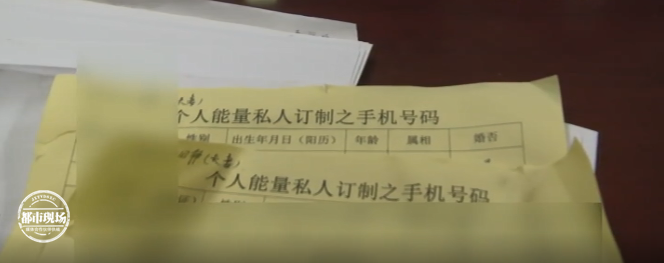 个人能量私人订制之手机号码
性别 出生年月日（阳历） 年龄 属相 婚否
个人能量私人订制之手机号码
都市现场